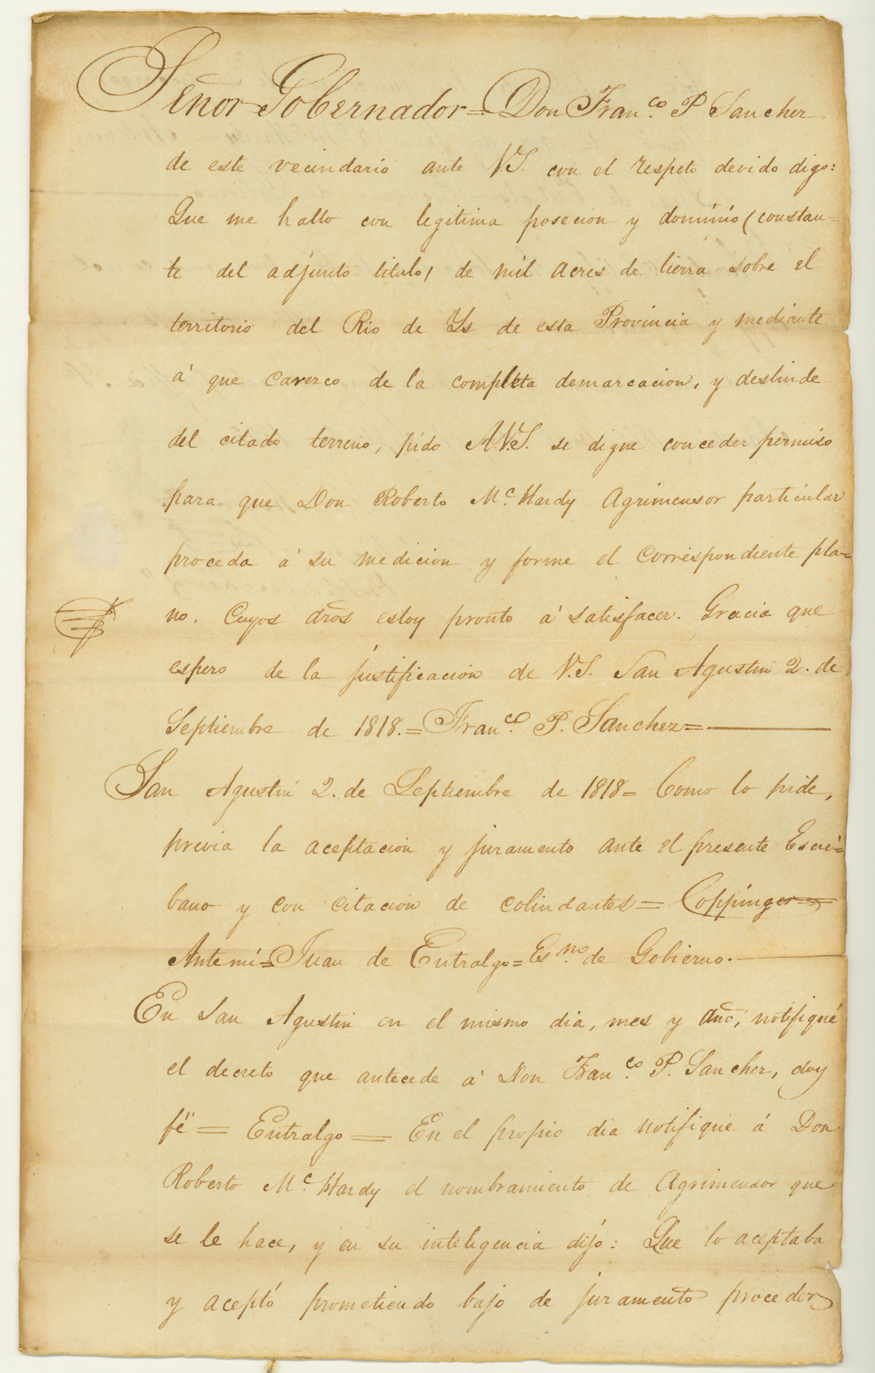 Señor Gobernador = Don Fran.co P Sanchez
de este vecindario ante V.S. con el respeto devido digo:
Que me hallo con legitima posecion y dominio (constan=
te del adjunto titulo) de mil acres de tierra sobre el
territorio del Rio de Ys de esta Provincia y mediante
á que carezco de la completa demarcacion, y deslinde
del citado terreno, pido A.V.S. se digne conceder permiso
para que Don Roberto Mc. Hardy Agrimensor particular
proceda á su medicion y forme el correspondiente pla=
no. Cuyos dros estoy pronto á satisfacer. Gracia que
espero de la justificacion de V.S. San Agustin 2. de
Septiembre de 1818. = Fran.co P. Sanchez =
San Agustin 2. de Septiembre de 1818 = Como lo pide,
previa la aceptacion y juramento ante el presente Escri=
bano y con citacion de colindantes = Coppinger =
Ante mi = Juan de Entralgo = Es.no de Gobierno.
En San Agustin en el mismo dia, mes y año, notifiqué
el decreto que antecede á Don Fran.co P. Sanchez, doy
fé = Entralgo = En el propio dia notifique á Don
Roberto Mc. Hardy el nombramiento de Agrimensor que
se le hace, y en su inteligencia dijo: Que lo aceptaba
y aceptó prometiendo bajo de juramento proceder